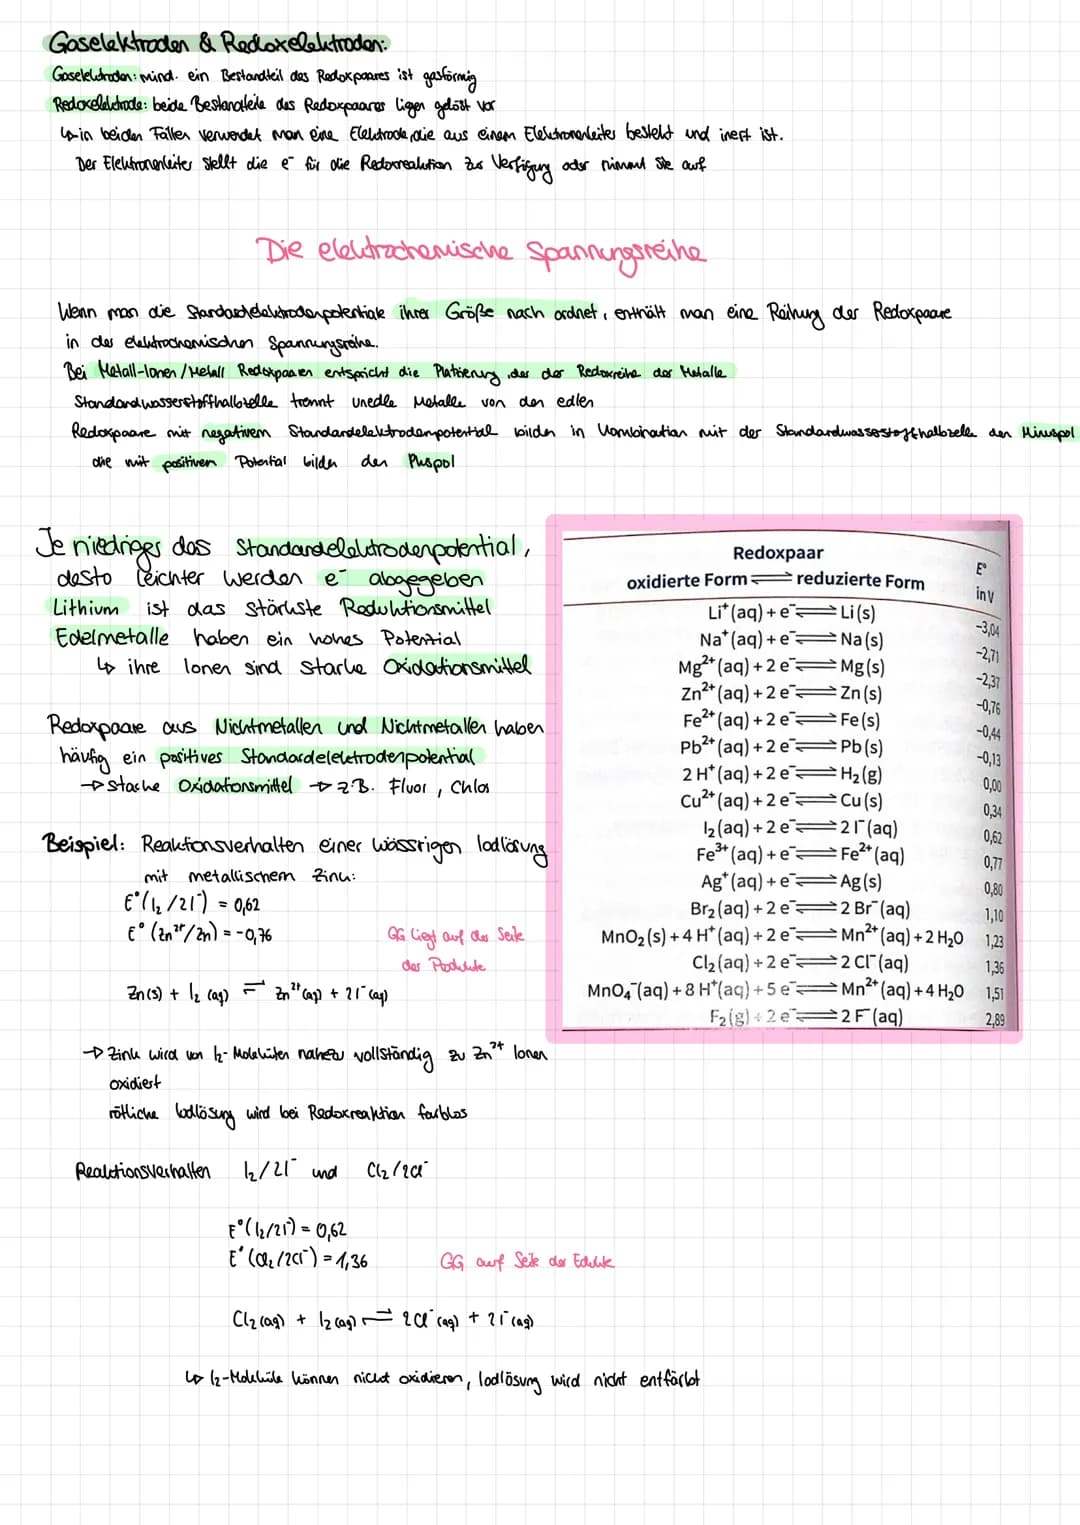 Gaselektroden & Redoxelektroden:
Gaselektroden: mind. ein Bestandteil des Redoxpaares ist gasförmig
Redoxelektrode: beide Bestandteile des Redoxpaares ligen gelöst vor
↳ in beiden Fällen verwendet man eine Elektrode, die aus einem Elektronenleiter besteht und inert ist.
Der Elektronenleiter stellt die e⁻ für die Redoxreaktion zur Verfügung oder nimmt sie auf
Die elektrochemische Spannungsreihe
Wenn man die Standardelektrodenpotentiale ihrer Größe nach ordnet, enthält man eine Reihung der Redoxpaare
in der elektrochemischen Spannungsreihe.
Bei Metall-Ionen/Metall Redoxpaaren entspricht die Platzierung, der der Redoxreihe der Metalle
Standardwasserstoffhalbzelle trennt unedle Metalle von den edlen
Redoxpaare mit negativem Standardelektrodenpotential bilden in Kombination mit der Standardwasserstoffhalbzelle den Minuspol
die mit positiven Potential bilden den Puspol
Je niedriger das Standardelektrodenpotential,
desto leichter werden e⁻ abgegeben
Lithium ist das stärkste Reduktionsmittel
Edelmetalle haben ein hohes Potential
↳ ihre Ionen sind starke Oxidationsmittel
Redoxpaare aus Nichtmetallen und Nichtmetallen haben
häufig ein positives Standardelektrodenpotential
→ starke Oxidationsmittel → z.B. Fluor, Chlor
Beispiel: Reaktionsverhalten einer wässrigen Iodlösung
mit metallischem Zink:
E°(I₂/2I⁻) = 0,62
E°(Zn²⁺/Zn) = -0,76
GG liegt auf der Seite
der Produkte
Zn(s) + I₂(aq) ⇌ Zn²⁺(aq) + 2I⁻(aq)
→ Zink wird von I₂-Molekülen nahezu vollständig zu Zn²⁺ Ionen
oxidiert
rötliche Iodlösung wird bei Redoxreaktion farblos
Reaktionsverhalten I₂/2I⁻ und Cl₂/2Cl⁻
E°(I₂/2I⁻) = 0,62
E°(Cl₂/2Cl⁻) = 1,36
GG auf Seite der Edukte
Cl₂(aq) + I₂(aq) ⇌ 2Cl⁻(aq) + 2I⁻(aq)
↳ I₂-Moleküle können nicht oxidieren, Iodlösung wird nicht entfärbt
Redoxpaar E°
oxidierte Form ⇌ reduzierte Form in V
Li⁺(aq) + e⁻ ⇌ Li(s) −3,04
Na⁺(aq) + e⁻ ⇌ Na(s) −2,71
Mg²⁺(aq) + 2 e⁻ ⇌ Mg(s) −2,37
Zn²⁺(aq) + 2 e⁻ ⇌ Zn(s) −0,76
Fe²⁺(aq) + 2 e⁻ ⇌ Fe(s) −0,44
Pb²⁺(aq) + 2 e⁻ ⇌ Pb(s) −0,13
2 H⁺(aq) + 2 e⁻ ⇌ H₂(g) 0,00
Cu²⁺(aq) + 2 e⁻ ⇌ Cu(s) 0,34
I₂(aq) + 2 e⁻ ⇌ 2 I⁻(aq) 0,62
Fe³⁺(aq) + e⁻ ⇌ Fe²⁺(aq) 0,77
Ag⁺(aq) + e⁻ ⇌ Ag(s) 0,80
Br₂(aq) + 2 e⁻ ⇌ 2 Br⁻(aq) 1,10
MnO₂(s) + 4 H⁺(aq) + 2 e⁻ ⇌ Mn²⁺(aq) + 2 H₂O 1,23
Cl₂(aq) + 2 e⁻ ⇌ 2 Cl⁻(aq) 1,36
MnO₄⁻(aq) + 8 H⁺(aq) + 5 e⁻ ⇌ Mn²⁺(aq) + 4 H₂O 1,51
F₂(g) + 2 e⁻ ⇌ 2 F⁻(aq) 2,89